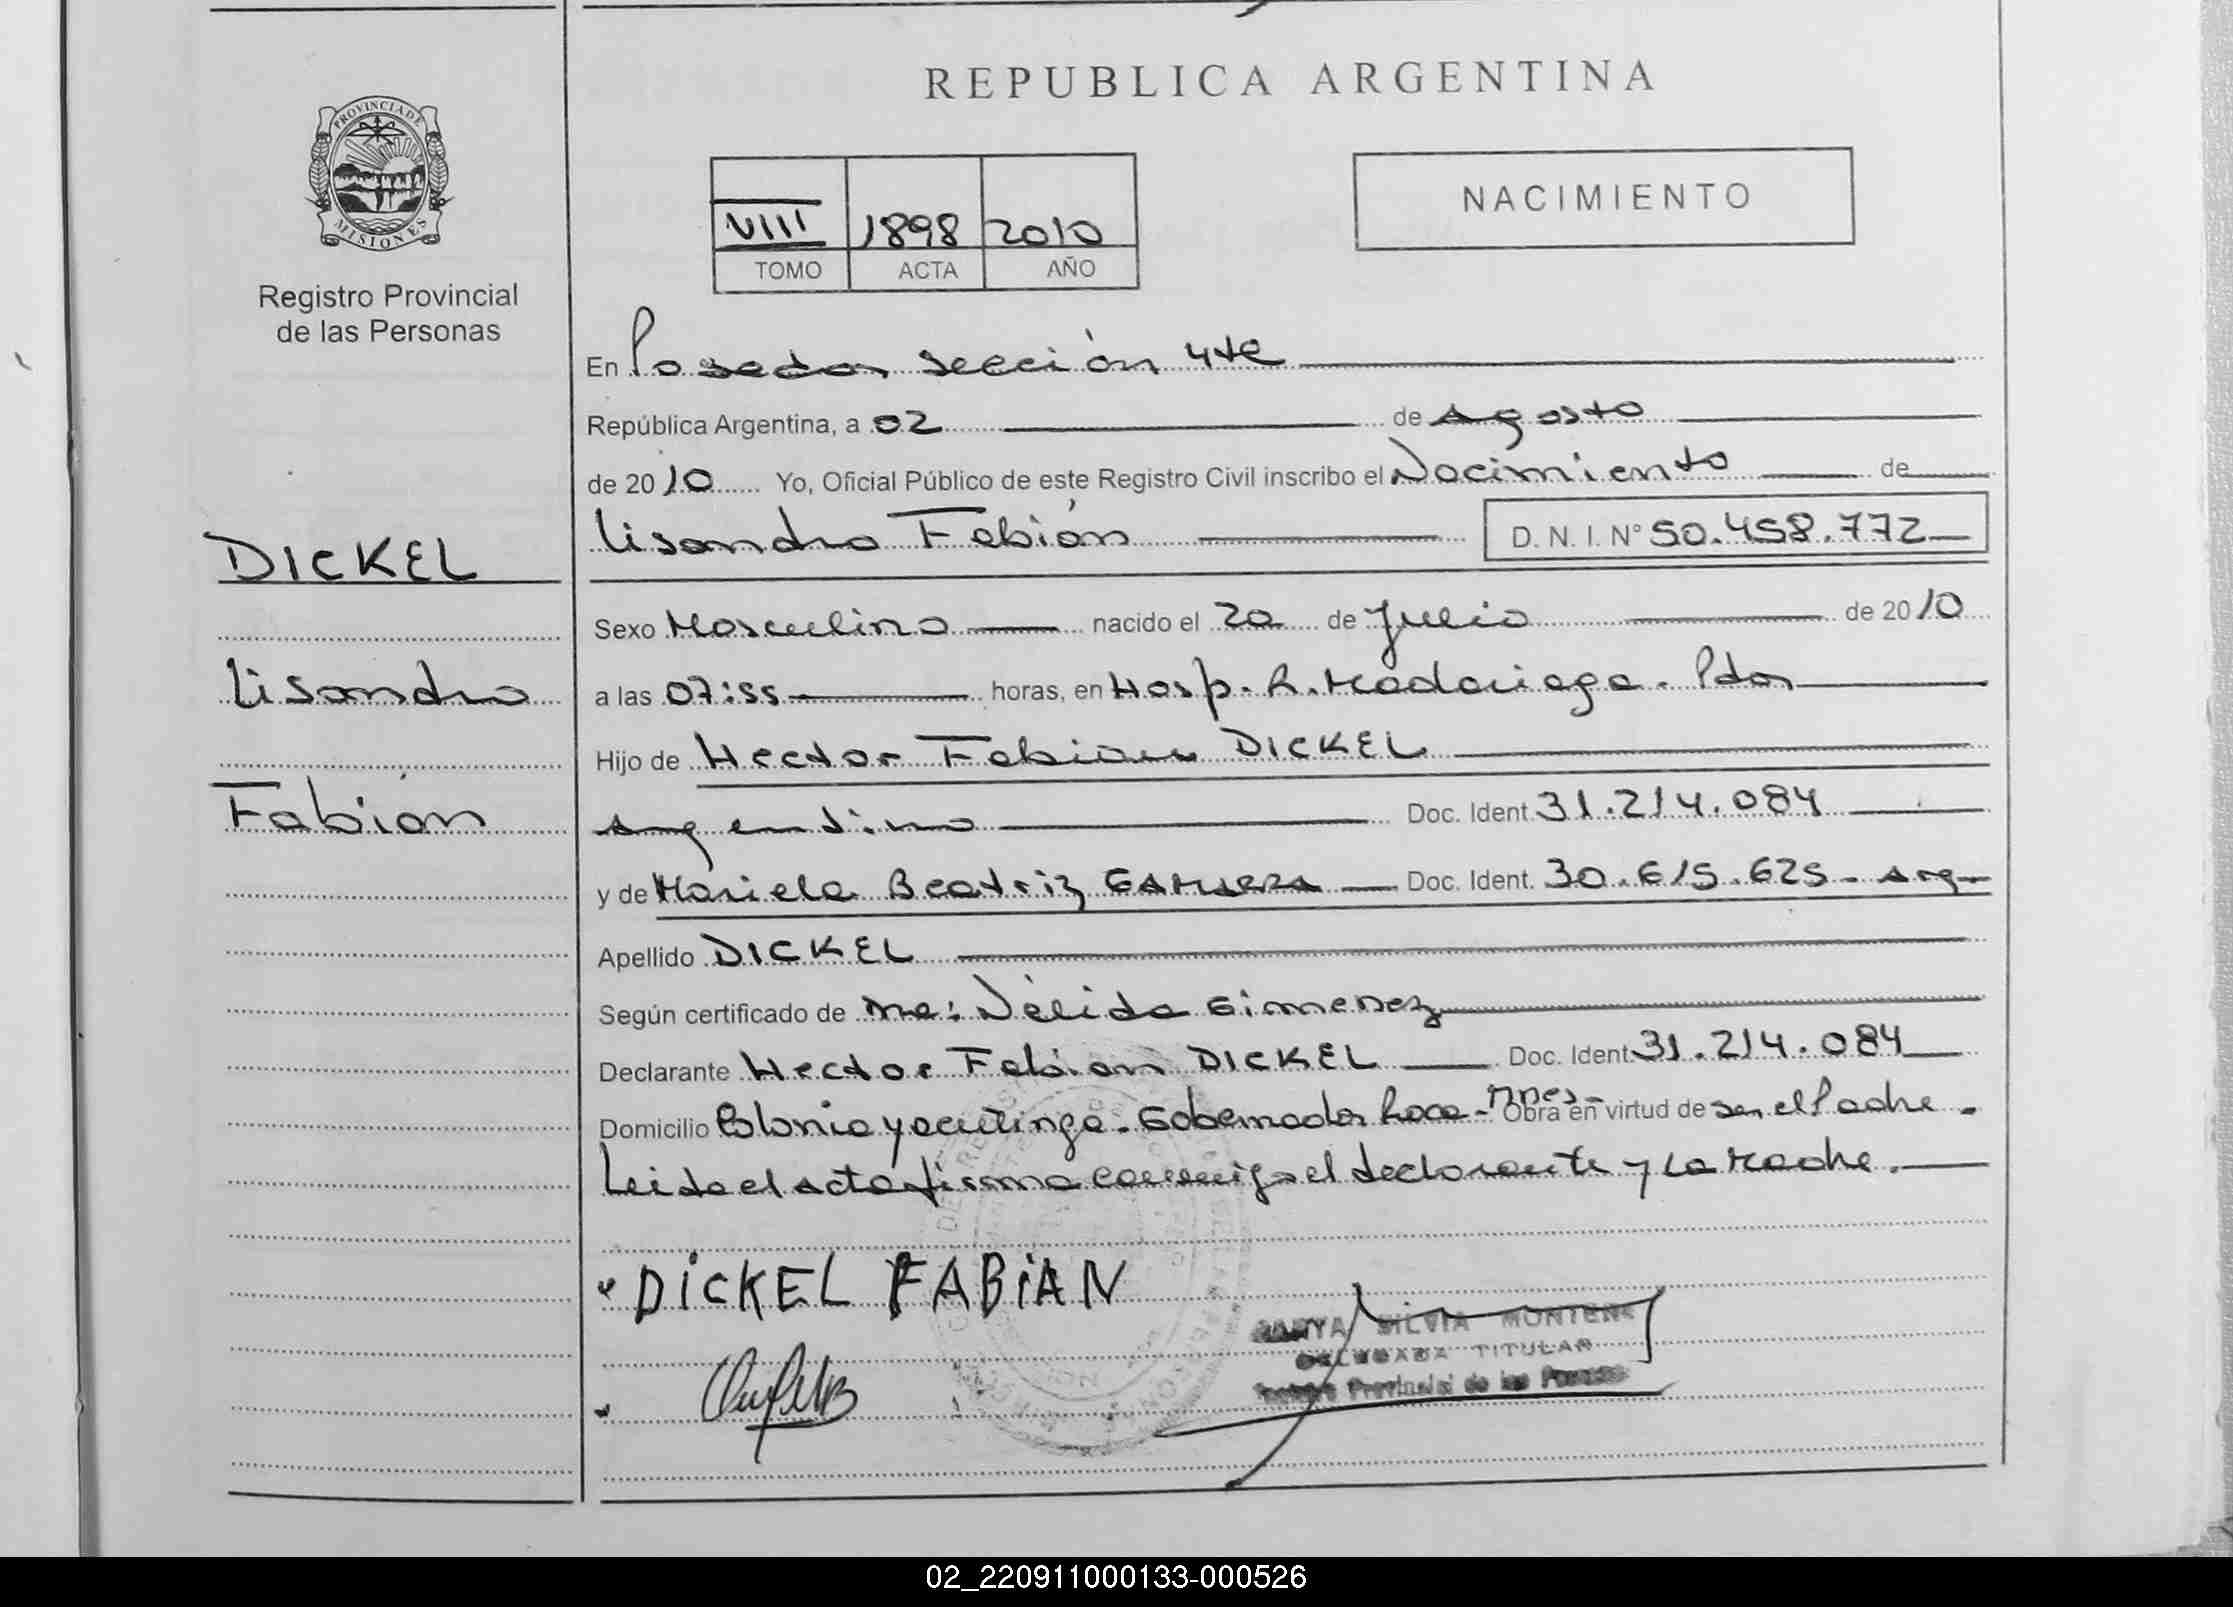 REPUBLICA ARGENTINA
PROVINCIA DE
MISIONES
Registro Provincial
de las Personas
VIII 1898 2010
TOMO ACTA AÑO
NACIMIENTO
En Posadas sección 4ta
República Argentina, a 02 de Agosto
de 2010 Yo, Oficial Público de este Registro Civil inscribo el Nacimiento de
Lisandro Fabián D. N. I. Nº 50.458.772
DICKEL
Lisandro
Fabián
Sexo Masculino nacido el 20 de Julio de 2010
a las 07:55 horas, en Hosp. R. Madariaga. Pdas
Hijo de Hector Fabian DICKEL
Argentino Doc. Ident. 31.214.084
y de Mariela Beatriz Doc. Ident. 30.615.625 - Arg-
Apellido DICKEL
Según certificado de Nélida Gimenez
Declarante Hector Fabian DICKEL Doc. Ident. 31.214.084
Domicilio Colonia Yacutinga. Gobernador Roca - Mnes - Obra en virtud de ser el Padre.
Leida el acta firma conmigo el declarante y la Madre.
DICKEL FABIAN
SILVIA
TITULAR
Provincial de las
02_220911000133-000526